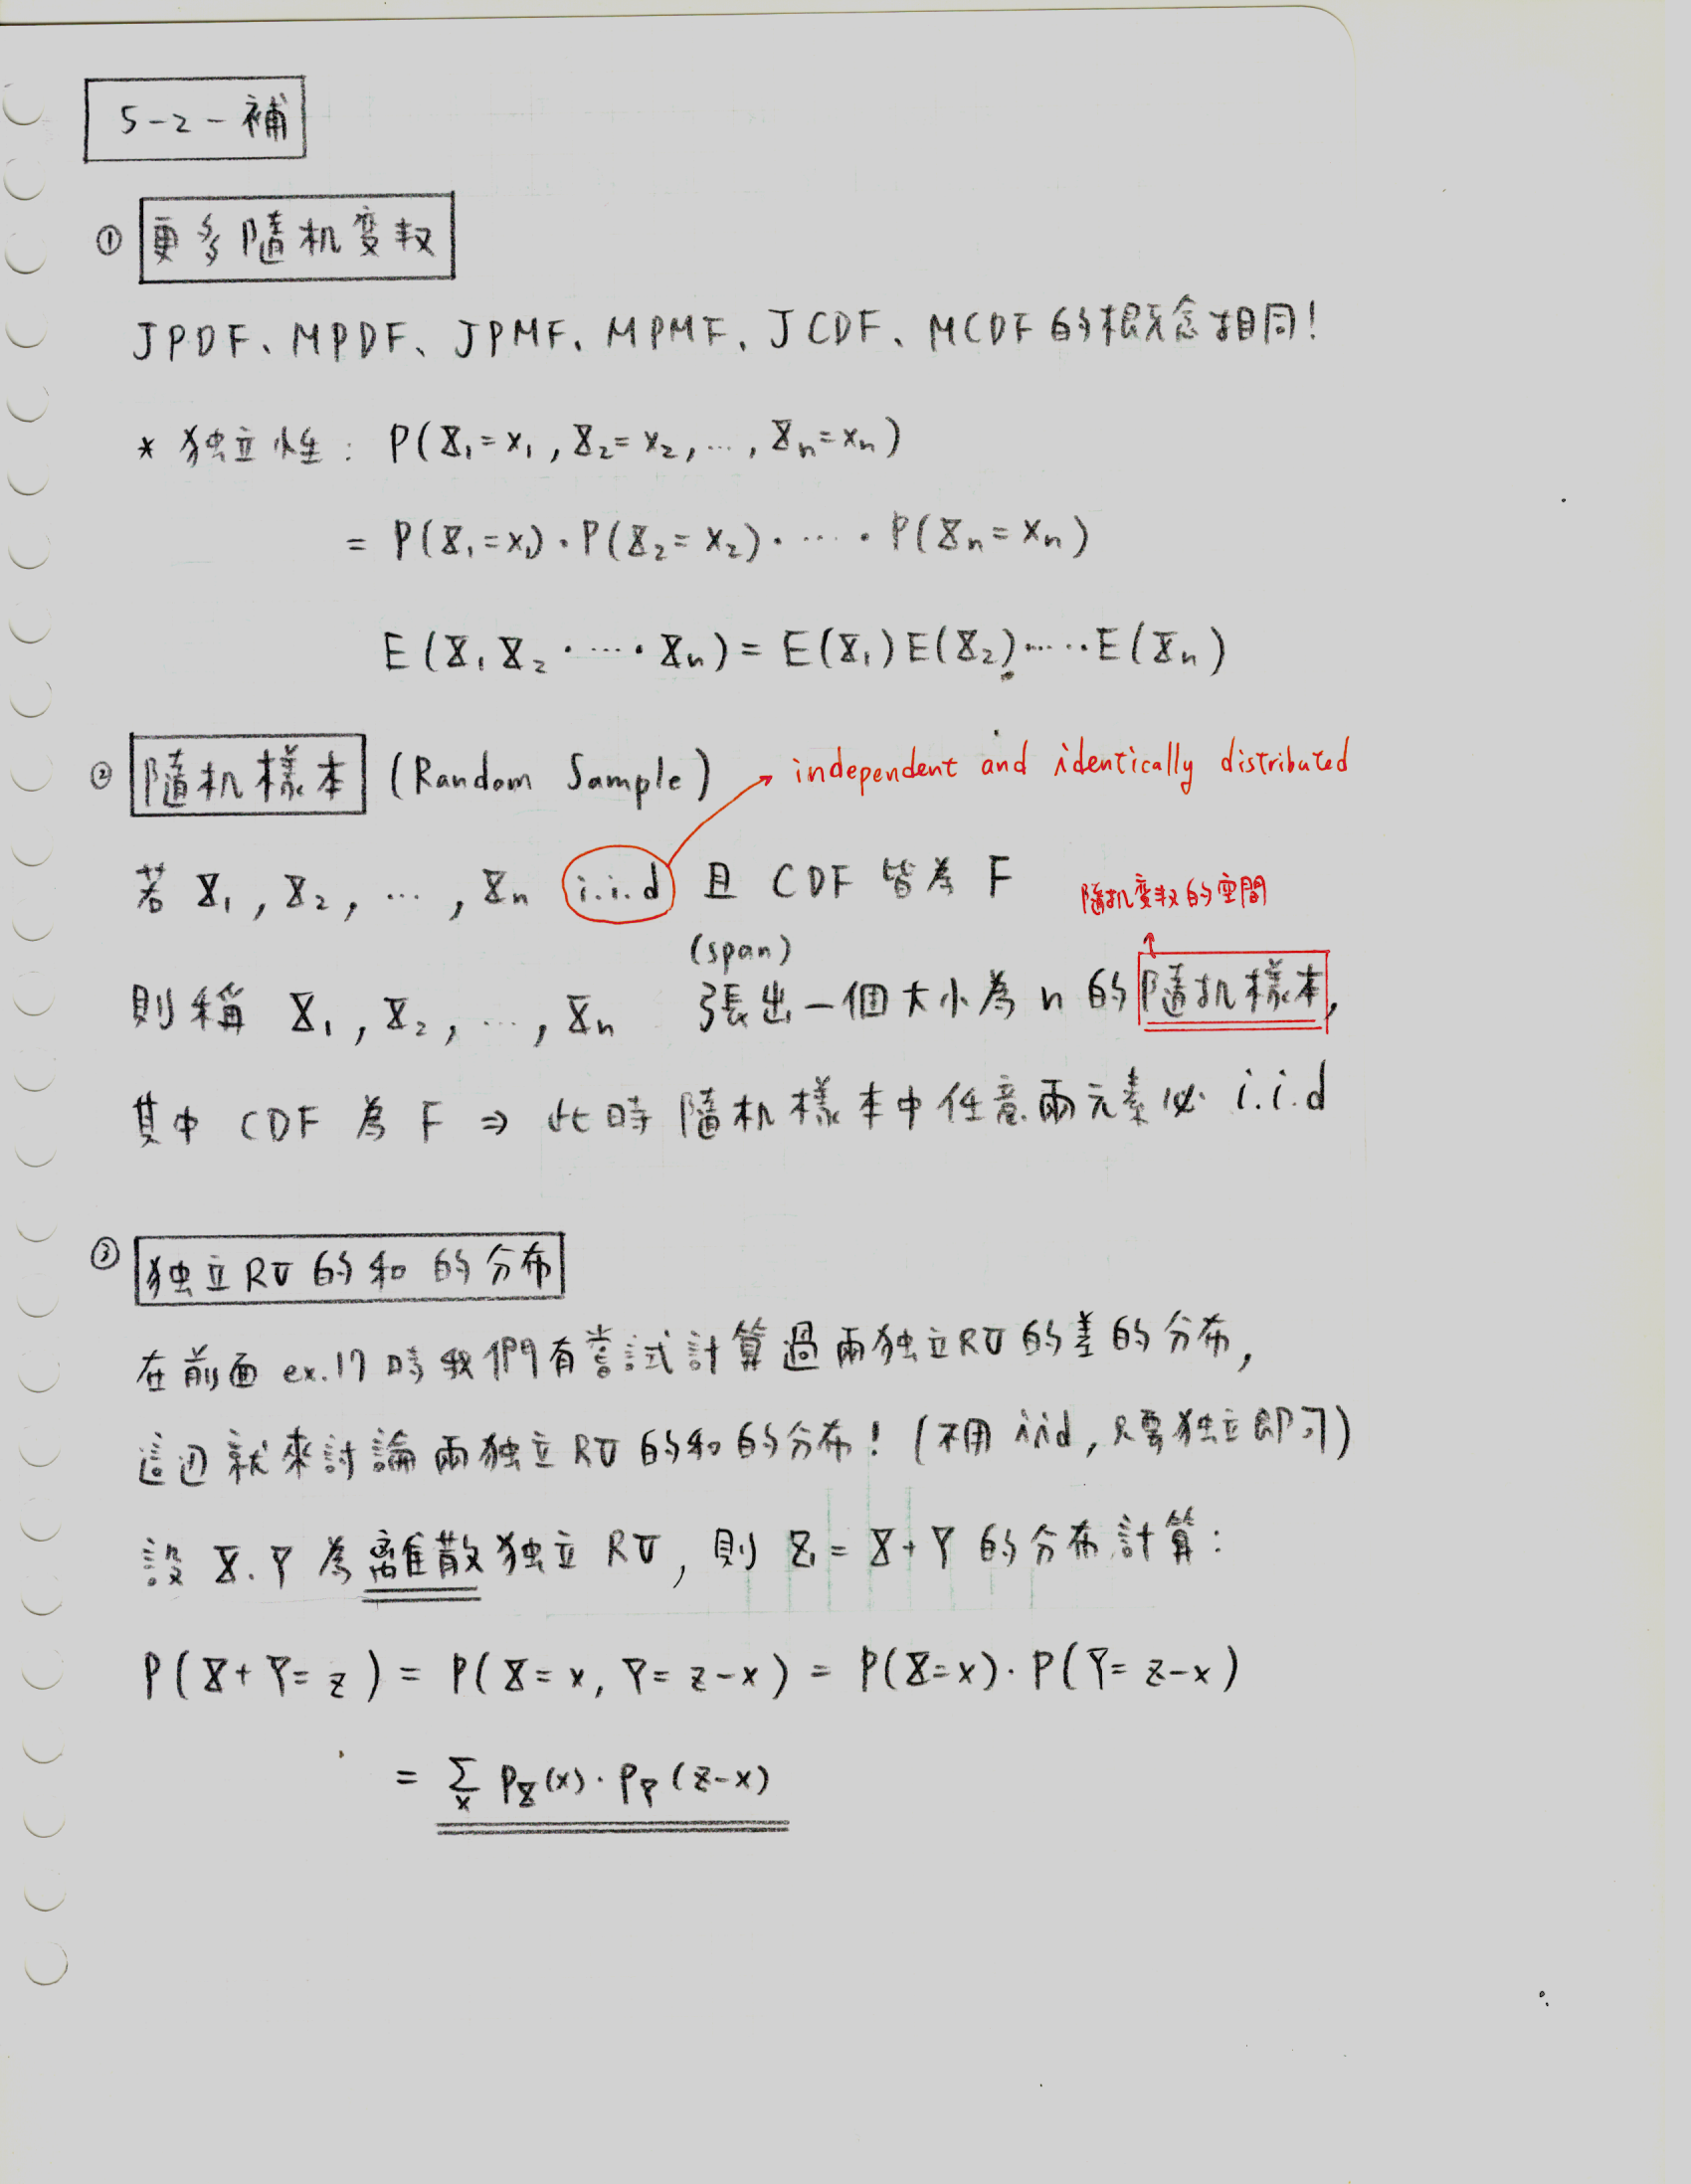 5-2-補
① 更多隨机变数
JPDF、MPDF、JPMF、MPMF、JCDF、MCDF 的概念相同!
* 独立性: P(X₁=x₁, X₂=x₂, ..., Xₙ=xₙ)
= P(X₁=x₁)·P(X₂=x₂)·⋯·P(Xₙ=xₙ)
E(X₁X₂·⋯·Xₙ) = E(X₁)E(X₂)⋯E(Xₙ)
② 隨机樣本 (Random Sample) → independent and identically distributed
若 X₁, X₂, ⋯, Xₙ i.i.d 且 CDF 皆為 F
隨机变数的空間
(span)
則稱 X₁, X₂, ⋯, Xₙ 張出一個大小為 n 的隨机樣本,
其中 CDF 為 F ⇒ 此時隨机樣本中任意兩元素必 i.i.d
③ 独立RV的和的分布
在前面 ex.17 時我們有嘗試計算過兩独立RV的差的分布,
這边就來討論兩独立RV的和的分布! (不用 iid, 只要独立即可)
設 X.Y 為離散独立 RV, 則 Z = X+Y 的分布計算:
P(X+Y=z) = P(X=x, Y=z-x) = P(X=x)·P(Y=z-x)
= Σₓ p_X(x)·p_Y(z-x)